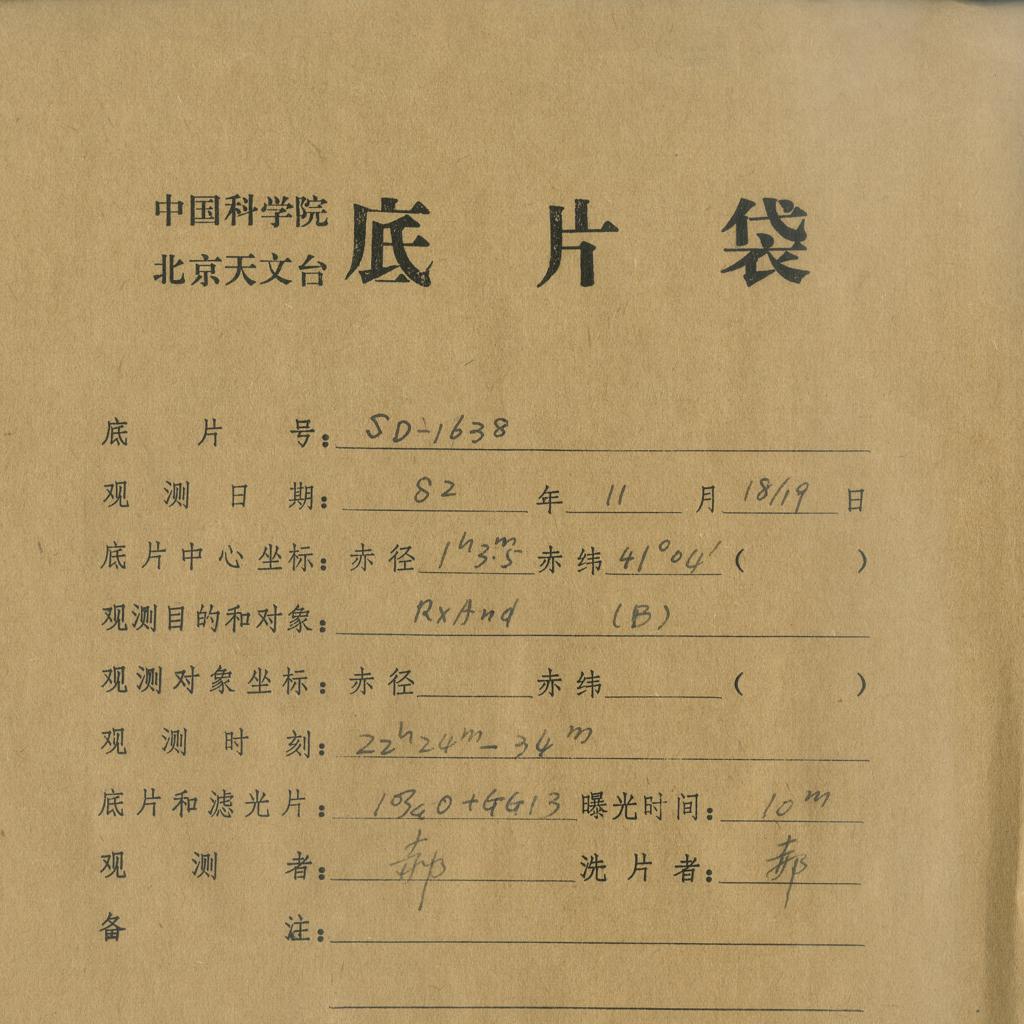 中国科学院
北京天文台 底片袋
底片号：SD-1638
观测日期：82年11月18/19日
底片中心坐标：赤径 1ʰ3ᵐ.5 赤纬 41°04′（ ）
观测目的和对象：RxAnd （B）
观测对象坐标：赤径 赤纬 （ ）
观测时刻：22ʰ24ᵐ-34ᵐ
底片和滤光片：+GG13 曝光时间：10ᵐ
观测者：郝 洗片者：郝
备注：